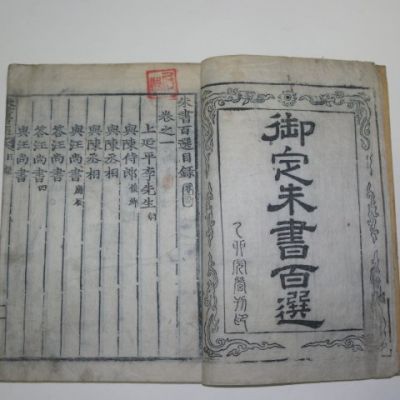 御定朱書百選
乙卯完營刊印
朱書百選目錄
卷之一
上延平李先生
與陳侍郎
與陳丞相
與陳丞相
與汪尚書
答汪尚書
答汪尚書
與汪尚書